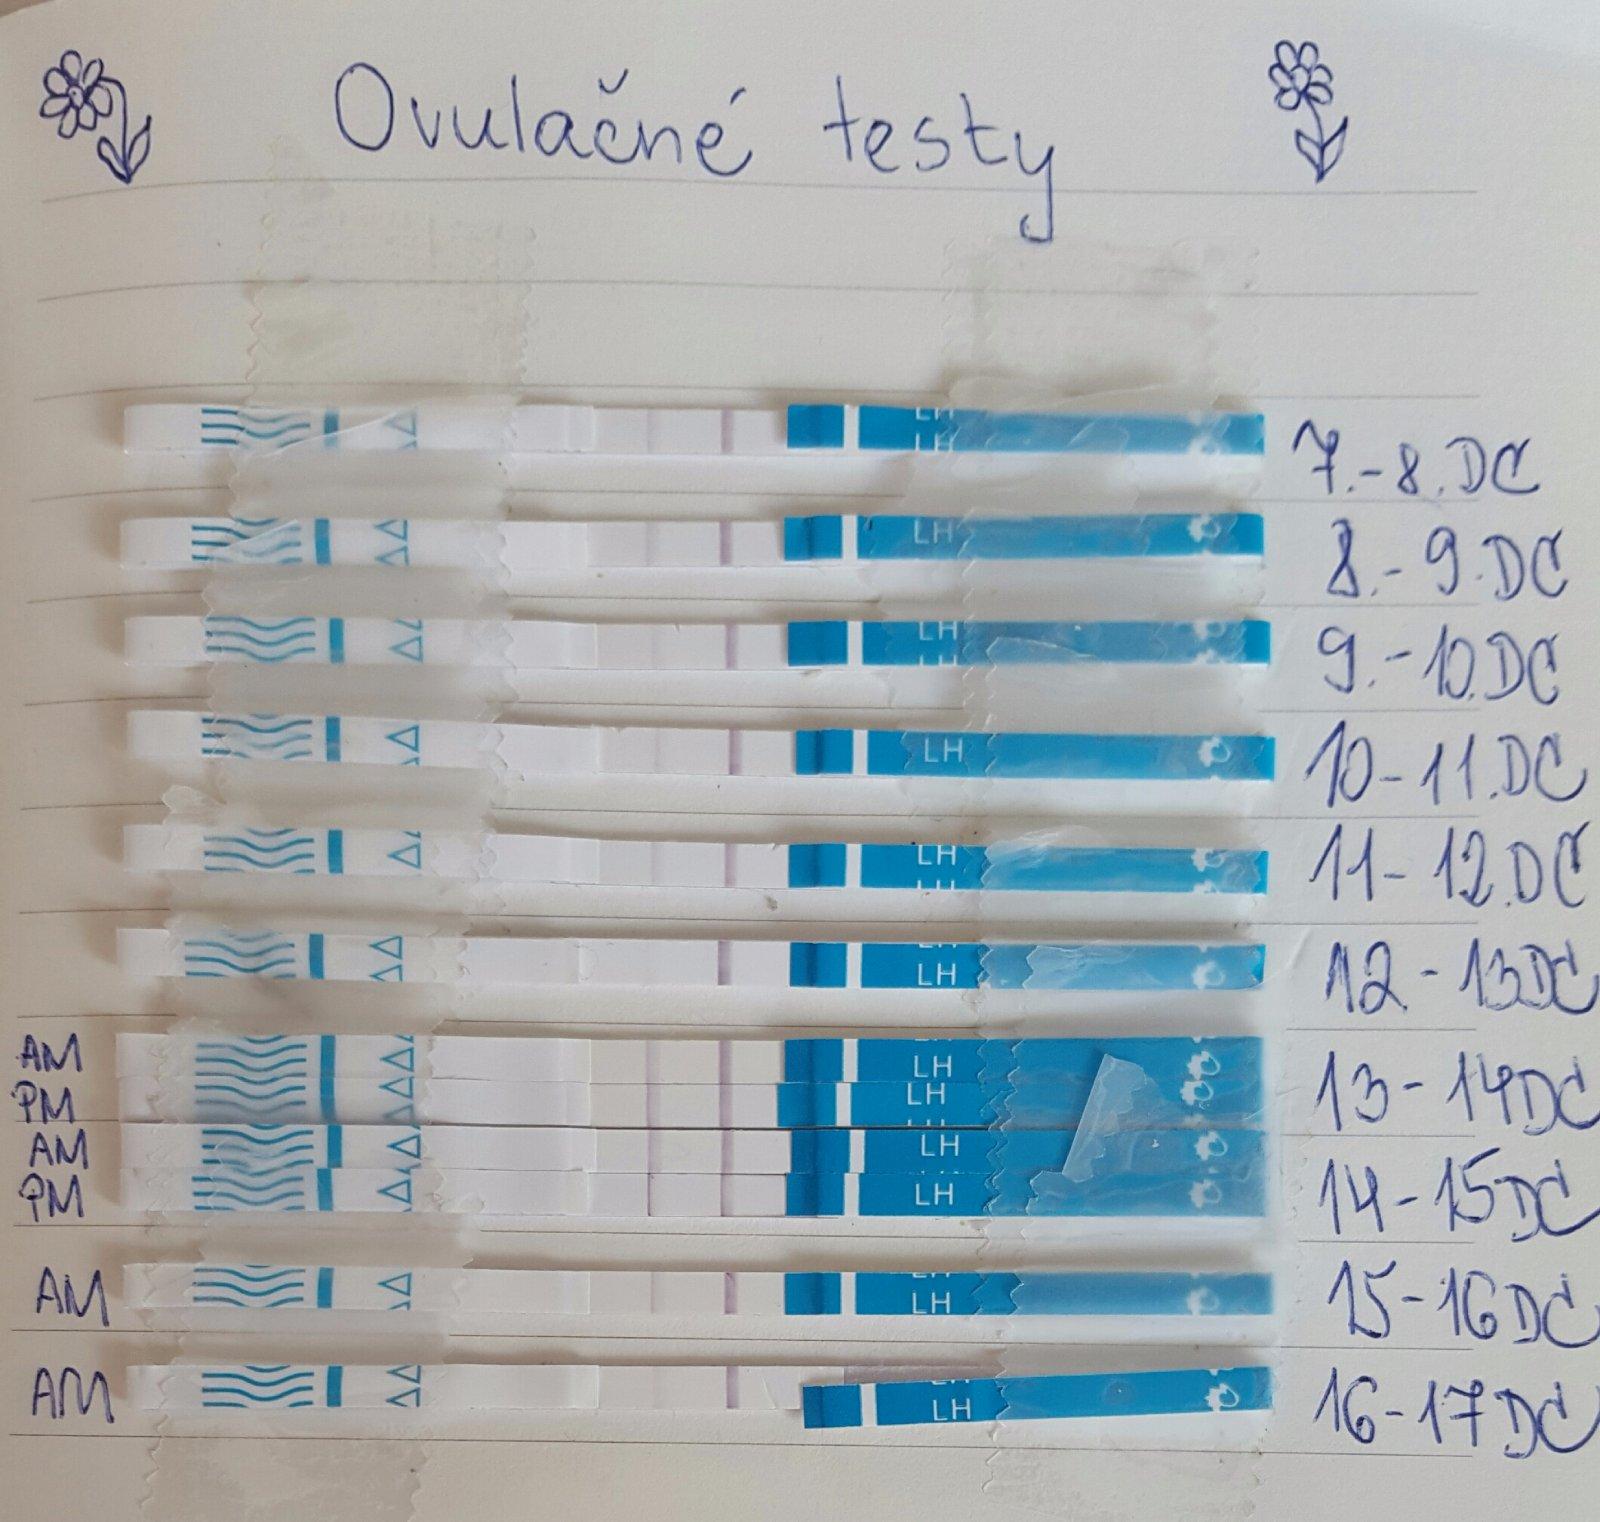 Ovulačné testy
LH LH 7.-8.DC
LH 8.-9.DC
LH LH 9.-10.DC
LH 10-11.DC
LH LH 11-12.DC
LH LH 12-13DC
AM LH LH 13-14DC
PM LH
AM LH
PM LH 14-15DC
AM LH LH 15-16DC
AM LH LH 16-17DC